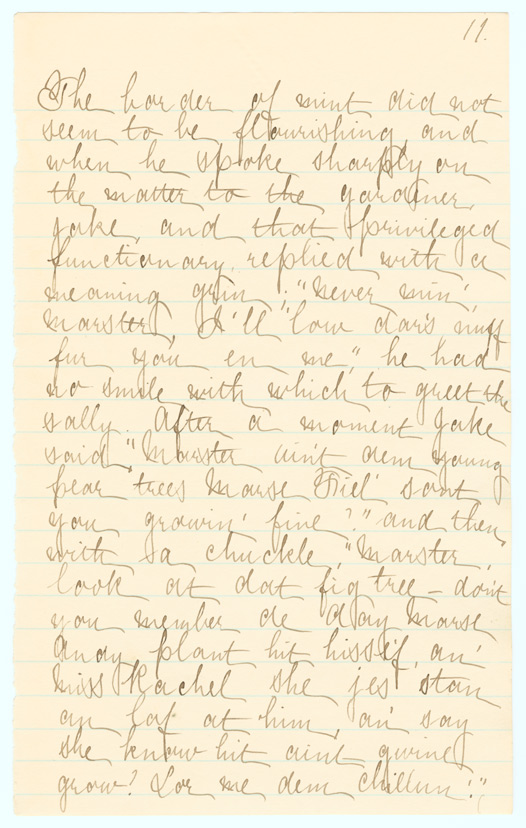 11.
The border of mint did not
seem to be flourishing, and
when he spoke sharply on
the matter to the gardener,
Jake, and that privileged
functionary, replied with a
meaning grin: "Never min',
Marster, I'll 'low dar's nuff
fur you en me," he had
no smile with which to greet the
sally. After a moment Jake
said, "Marster ain't dem young
pear trees Marse 'Friel' sont
you growin' fine?" and then,
with a chuckle, "Marster,
look at dat fig tree – don't
you member de day Marse
Andy plant hit hisse'f, an'
Miss Rachel she jes' stan
an laf at him, an' say
she know hit aint gwine
grow? Lor me dem chillun!"